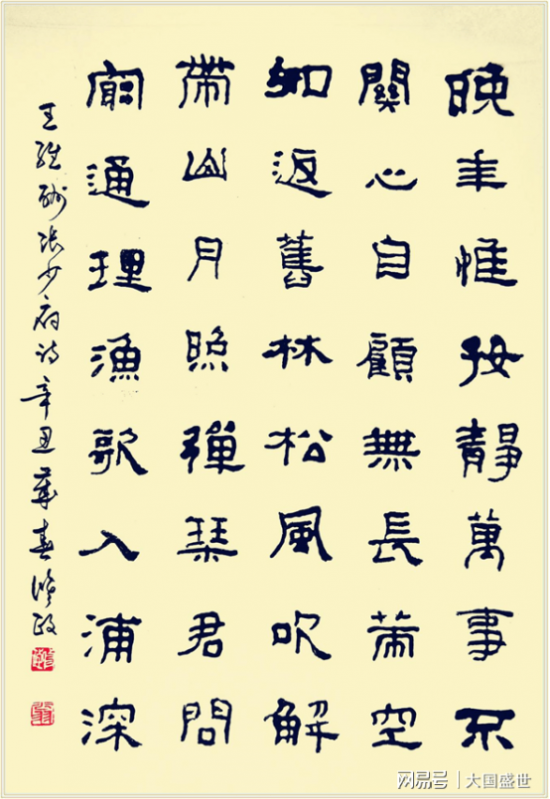 晚年惟好靜萬事不
關心自顧無長策空
知返舊林松風吹解
帶山月照彈琴君問
窮通理漁歌入浦深
王维酬张少府诗辛丑春
网易号 | 大国盛世